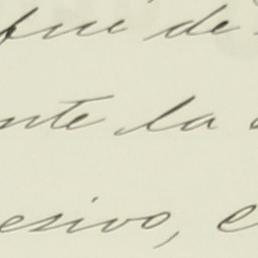 fué de
nte la
esivo, e